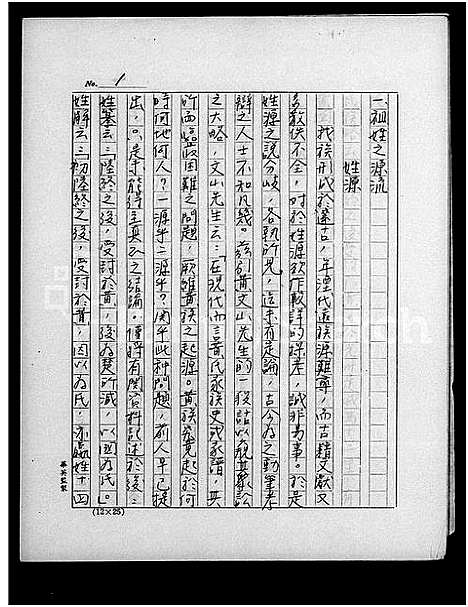 No. 1
一、祖姓之源流
姓源
我族刑氏於遠古，年湮代遠族源難尋，而古籍文献又
多散佚不全，对於姓源欲作較詳的探考，誠非易事。於是
姓源之說分岐，各執所見，迄未有定論，古今為之動筆考
辯之人士不知凡幾。茲引黃文山先生的一段話以窺其眾訟
之大略，文山先生云：「在現代而言黃氏家族史或家譜，其
所面臨最困难之問題，厥維黃族之起源。黃族究竟起於何
時何地何人？一源乎二源乎？関乎此种問題，前人早已提
出，只是手能得主真公之結論。僅將有関資料記述於後：
姓纂云：「陸終之後，受封於黃，後為楚所滅，以國為氏。」
姓解云：「初陸終之後，受封於黃，因以為氏，亦嬴姓十四
華英監製
(12×25)